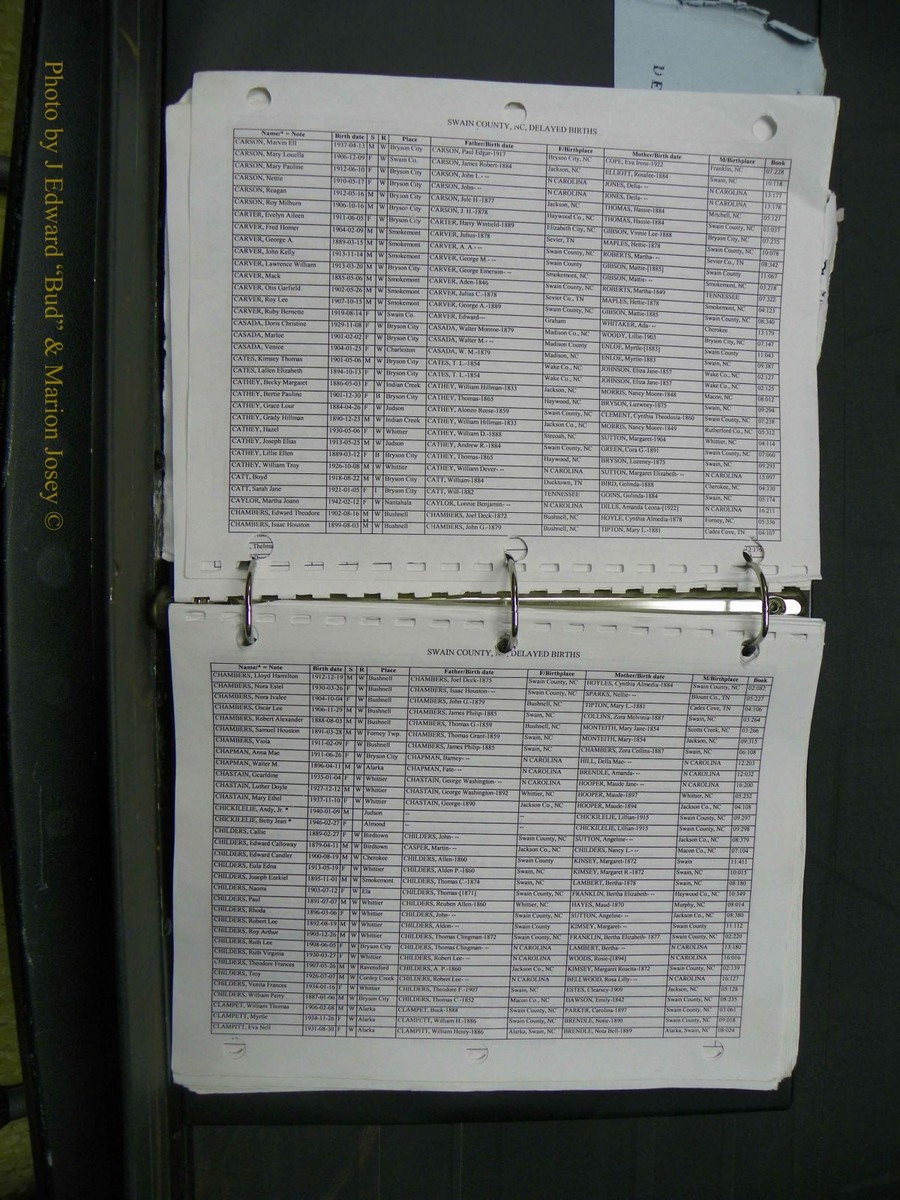 Photo by J Edward "Bud" & Marion Josey ©
DE
SWAIN COUNTY, NC, DELAYED BIRTHS
Name/* = Note Birth date S R Place Father/Birth date F/Birthplace Mother/Birth date M/Birthplace Book
CARSON, Marvin Ell 1937-04-13 M W Bryson City CARSON, Paul Edgar-1917 Bryson City, NC COPE, Eva Irene-1922 Franklin, NC 07:228
CARSON, Mary Louella 1906-12-09 F W Swain Co. CARSON, James Robert-1884 Jackson, NC ELLIOTT, Rosalee-1884 Swain, NC 10:118
CARSON, Mary Pauline 1912-06-10 F W Bryson City CARSON, John L.- -- N CAROLINA JONES, Delia- -- N CAROLINA 13:177
CARSON, Nettie 1910-05-17 F W Bryson City CARSON, John- -- N CAROLINA JONES, Delia- -- N CAROLINA 13:178
CARSON, Reagan 1912-05-16 M W Bryson City CARSON, Jule H.-1877 Jackson, NC THOMAS, Hassie-1884 Mitchell, NC 05:127
CARSON, Roy Milburn 1906-10-16 M W Bryson City CARSON, J. H.-1878 Haywood Co., NC THOMAS, Hassie-1884 Swain County, NC 03:057
CARTER, Evelyn Aileen 1911-06-05 F W Bryson City CARTER, Harry Winfield-1889 Elizabeth City, NC GIBSON, Vinnie Lee-1888 Bryson City, NC 07:275
CARVER, Fred Homer 1904-02-09 M W Smokemont CARVER, Julius-1878 Sevier, TN MAPLES, Hettie-1878 Swain County, NC 10:078
CARVER, George A. 1889-03-15 M W Smokemont CARVER, A. A.- -- Swain County, NC ROBERTS, Martha- -- Sevier Co., TN 08:342
CARVER, John Kelly 1913-11-14 M W Smokemont CARVER, George M.- -- Swain County GIBSON, Mattie-[1885] Swain County 11:067
CARVER, Lawrence William 1913-03-20 M W Bryson City CARVER, George Emerson- -- Smokemont, NC GIBSON, Mattie- -- Smokemont, NC 03:218
CARVER, Mack 1885-05-06 M W Smokemont CARVER, Aden-1846 Smokemont, NC ROBERTS, Martha-1849 TENNESSEE 07:322
CARVER, Otis Garfield 1902-05-26 M W Smokemont CARVER, Julius C.-1878 Sevier Co., TN MAPLES, Hettie-1878 Smokemont, NC 04:123
CARVER, Roy Lee 1907-10-15 M W Smokemont CARVER, George A.-1889 Swain County, NC GIBSON, Mattie-1885 Swain County, NC 08:340
CARVER, Ruby Bernette 1919-08-14 F W Swain Co. CARVER, Edward--- Graham WHITAKER, Ada- -- Cherokee 13:179
CASADA, Doris Christine 1929-11-08 F W Bryson City CASADA, Walter Monroe-1879 Madison Co., NC WOODY, Lillie-1903 Bryson City, NC 07:147
CASADA, Marlee 1901-02-02 F W Bryson City CASADA, Walter M.- -- Madison County ENLOE, Myrtle-[1883] Swain County 11:043
CASADA, Venice 1904-01-25 F W Charleston CASADA, W. M.-1879 Madison, NC ENLOE, Myrtle-1883 Swain, NC 09:387
CATES, Kimsey Thomas 1901-05-06 M W Bryson City CATES, T. L.-1854 Wake Co., NC JOHNSON, Eliza Jane-1857 Wake Co., NC 02:127
CATES, Lallen Elizabeth 1894-10-13 F W Bryson City CATES, T. L.-1854 Wake Co., NC JOHNSON, Eliza Jane-1857 Wake Co., NC 02:125
CATHEY, Becky Margaret 1886-05-03 F W Indian Creek CATHEY, William Hillman-1833 Jackson, NC MORRIS, Nancy Moore-1848 Macon, NC 08:012
CATHEY, Bertie Pauline 1901-12-30 F B Bryson City CATHEY, Thomas-1865 Haywood, NC BRYSON, Luzwney-1875 Swain, NC 09:294
CATHEY, Grace Lour 1884-04-26 F W Judson CATHEY, Alonzo Reese-1859 Swain County, NC CLEMENT, Cynthia Theodosia-1860 Swain County, NC 07:238
CATHEY, Grady Hillman 1890-12-23 M W Indian Creek CATHEY, William Hillman-1833 Jackson Co., NC MORRIS, Nancy Moore-1849 Rutherford Co., NC 05:312
CATHEY, Hazel 1930-05-06 F W Whittier CATHEY, William D.-1888 Stecoah, NC SUTTON, Margaret-1904 Whittier, NC 04:114
CATHEY, Joseph Elias 1913-05-25 M W Judson CATHEY, Andrew R.-1884 Swain County, NC GREEN, Cora G.-1891 Swain County, NC 07:060
CATHEY, Lillie Ellen 1889-03-12 F B Bryson City CATHEY, Thomas-1865 Haywood, NC BRYSON, Luzeney-1875 Swain, NC 09:293
CATHEY, William Troy 1926-10-08 M W Whittier CATHEY, William Dever- -- N CAROLINA SUTTON, Margaret Elizabeth- -- N CAROLINA 15:097
CATT, Boyd 1918-08-22 M W Bryson City CATT, William-1884 Ducktown, TN BIRD, Golinda-1888 Cherokee, NC 04:330
CATT, Sarah Jane 1921-01-05 F I Bryson City CATT, Will-1882 TENNESSEE GOINS, Golinda-1884 Swain, NC 05:174
CAYLOR, Martha Joann 1942-02-12 F W Nantahala CAYLOR, Lonnie Benjamin- -- N CAROLINA DILLS, Amanda Leona-[1922] N CAROLINA 16:211
CHAMBERS, Edward Theodore 1902-08-16 M W Bushnell CHAMBERS, Joel Deck-1872 Bushnell, NC HOYLE, Cynthia Almedia-1878 Forney, NC 05:336
CHAMBERS, Isaac Houston 1899-08-03 M W Bushnell CHAMBERS, John G.-1879 Bushnell, NC TIPTON, Mary L.-1881 Cades Cove, TN 04:107
, Thelma
SWAIN COUNTY, DELAYED BIRTHS
Name/* = Note Birth date S R Place Father/Birth date F/Birthplace Mother/Birth date M/Birthplace Book
CHAMBERS, Lloyd Hamilton 1912-12-19 M W Bushnell CHAMBERS, Joel Deck-1875 Swain County, NC HOYLES, Cynthia Almedia-1884 Swain County, NC 02:082
CHAMBERS, Nora Estel 1930-03-26 F W Bushnell CHAMBERS, Isaac Houston- -- Swain, NC SPARKS, Nellie- -- Blount Co., TN 05:227
CHAMBERS, Nora Ivalee 1904-10-04 F W Bushnell CHAMBERS, John G.-1879 Bushnell, NC TIPTON, Mary L.-1881 Cades Cove, TN 04:106
CHAMBERS, Oscar Lee 1906-11-29 M W Bushnell CHAMBERS, James Philip-1885 Swain, NC COLLINS, Zora Melvinia-1887 Swain, NC 03:264
CHAMBERS, Robert Alexander 1888-08-03 M W Bushnell CHAMBERS, Thomas G.-1859 Bushnell, NC MONTEITH, Mary Jane-1854 Scotts Creek, NC 03:266
CHAMBERS, Samuel Houston 1891-03-28 M W Forney Twp. CHAMBERS, Thomas Grant-1859 Swain, NC MONTEITH, Mary-1854 Jackson, NC 09:315
CHAMBERS, Viola 1911-02-09 F W Bushnell CHAMBERS, James Philip-1885 Swain, NC CHAMBERS, Zora Collins-1887 Swain, NC 06:108
CHAPMAN, Anna Mae 1911-06-26 F W Bryson City CHAPMAN, Barney- -- N CAROLINA HILL, Della Mae- -- N CAROLINA 12:203
CHAPMAN, Walter M. 1896-04-11 M W Alarka CHAPMAN, Fate- -- N CAROLINA BRENDLE, Amanda- -- N CAROLINA 12:032
CHASTAIN, Gearldine 1935-01-04 F W Whittier CHASTAIN, George Washington- -- N CAROLINA HOOPER, Maude Jane- -- N CAROLINA 16:200
CHASTAIN, Luther Doyle 1927-12-12 M W Whittier CHASTAIN, George Washington-1892 Whittier, NC HOOPER, Maude-1897 Whittier, NC 05:252
CHASTAIN, Mary Ethel 1937-11-10 F W Whittier CHASTAIN, George-1890 Jackson Co., NC HOOPER, Maude-1894 Jackson Co., NC 04:108
CHICKILELIE, Andy, Jr. * 1940-01-09 M Judson -- -- CHICKILELIE, Lillian-1915 Swain County, NC 09:297
CHICKILELIE, Betty Jean * 1946-02-27 F Almond -- -- CHICKILELIE, Lillian-1915 Swain County, NC 09:298
CHILDERS, Callie 1889-02-27 F W Birdtown CHILDERS, John- -- Swain County, NC SUTTON, Angeline- -- Jackson Co., NC 08:379
CHILDERS, Edward Calloway 1879-04-11 M W Birdtown CASPER, Martin- -- Jackson Co., NC CHILDERS, Nancy L.- -- Macon Co., NC 07:104
CHILDERS, Edward Candler 1900-08-19 M W Cherokee CHILDERS, Allen-1860 Swain County KINSEY, Margaret-1872 Swain 11:411
CHILDERS, Eula Edna 1913-05-19 F W Whittier CHILDERS, Alden P.-1860 Swain, NC KIMSEY, Margaret R.-1872 Swain, NC 10:015
CHILDERS, Joseph Ezekiel 1895-11-01 M W Smokemont CHILDERS, Thomas C.-1874 Swain, NC LAMBERT, Bertha-1878 Swain, NC 08:180
CHILDERS, Naomi 1903-07-12 F W Ela CHILDERS, Thomas-[1871] Swain County, NC FRANKLIN, Bertha Elizabeth- -- Haywood Co., NC 10:349
CHILDERS, Paul 1891-07-07 M W Whittier CHILDERS, Reuben Allen-1860 Whittier, NC HAYES, Maud-1870 Murphy, NC 08:014
CHILDERS, Rhoda 1896-03-06 F W Whittier CHILDERS, John- -- Swain County, NC SUTTON, Angeline- -- Jackson Co., NC 08:380
CHILDERS, Robert Lee 1892-08-19 M W Whittier CHILDERS, Aldon- -- Swain County KIMSEY, Margaret- -- Swain County 11:112
CHILDERS, Roy Arthur 1905-12-26 M W Whittier CHILDERS, Thomas Clingman-1872 Swain County, NC FRANKLIN, Bertha Elizabeth-1877 Swain County, NC 02:220
CHILDERS, Ruth Lee 1908-06-05 F W Bryson City CHILDERS, Thomas Clingman- -- N CAROLINA LAMBERT, Bertha- -- N CAROLINA 13:180
CHILDERS, Ruth Virginia 1930-03-27 F W Whittier CHILDERS, Robert Lee- -- N CAROLINA WOODS, Rosie-[1894] N CAROLINA 16:016
CHILDERS, Theodore Frances 1907-05-26 M W Ravensford CHILDERS, A. P.-1860 Jackson Co., NC KIMSEY, Margaret Rosetta-1872 Swain County, NC 02:139
CHILDERS, Troy 1926-07-07 M W Conley Creek CHILDERS, Robert Lee- -- N CAROLINA BELLWOOD, Rosa Lilly- -- N CAROLINA 16:127
CHILDERS, Venila Frances 1934-01-16 F W Whittier CHILDERS, Theodore F.-1907 Swain, NC ESTES, Clearsey-1909 Jackson, NC 05:128
CHILDERS, William Perry 1887-01-06 M W Bryson City CHILDERS, Thomas C.-1852 Macon Co., NC DAWSON, Emily-1842 Swain County, NC 08:235
CLAMPET, William Thomas 1906-02-08 M W Alarka CLAMPET, Buck-1888 Swain County, NC PARKER, Carolina-1897 Swain County, NC 03:061
CLAMPETT, Myrtle 1934-11-26 F W Alarka CLAMPETT, William H.-1886 Swain County, NC BRENDLE, Notie-1890 Swain County, NC 09:018
CLAMPITT, Eva Nell 1931-08-30 F W Alarka CLAMPITT, William Henry-1886 Alarka, Swain, NC BRENDLE, Nota Bell-1889 Alarka, Swain, NC 08:024